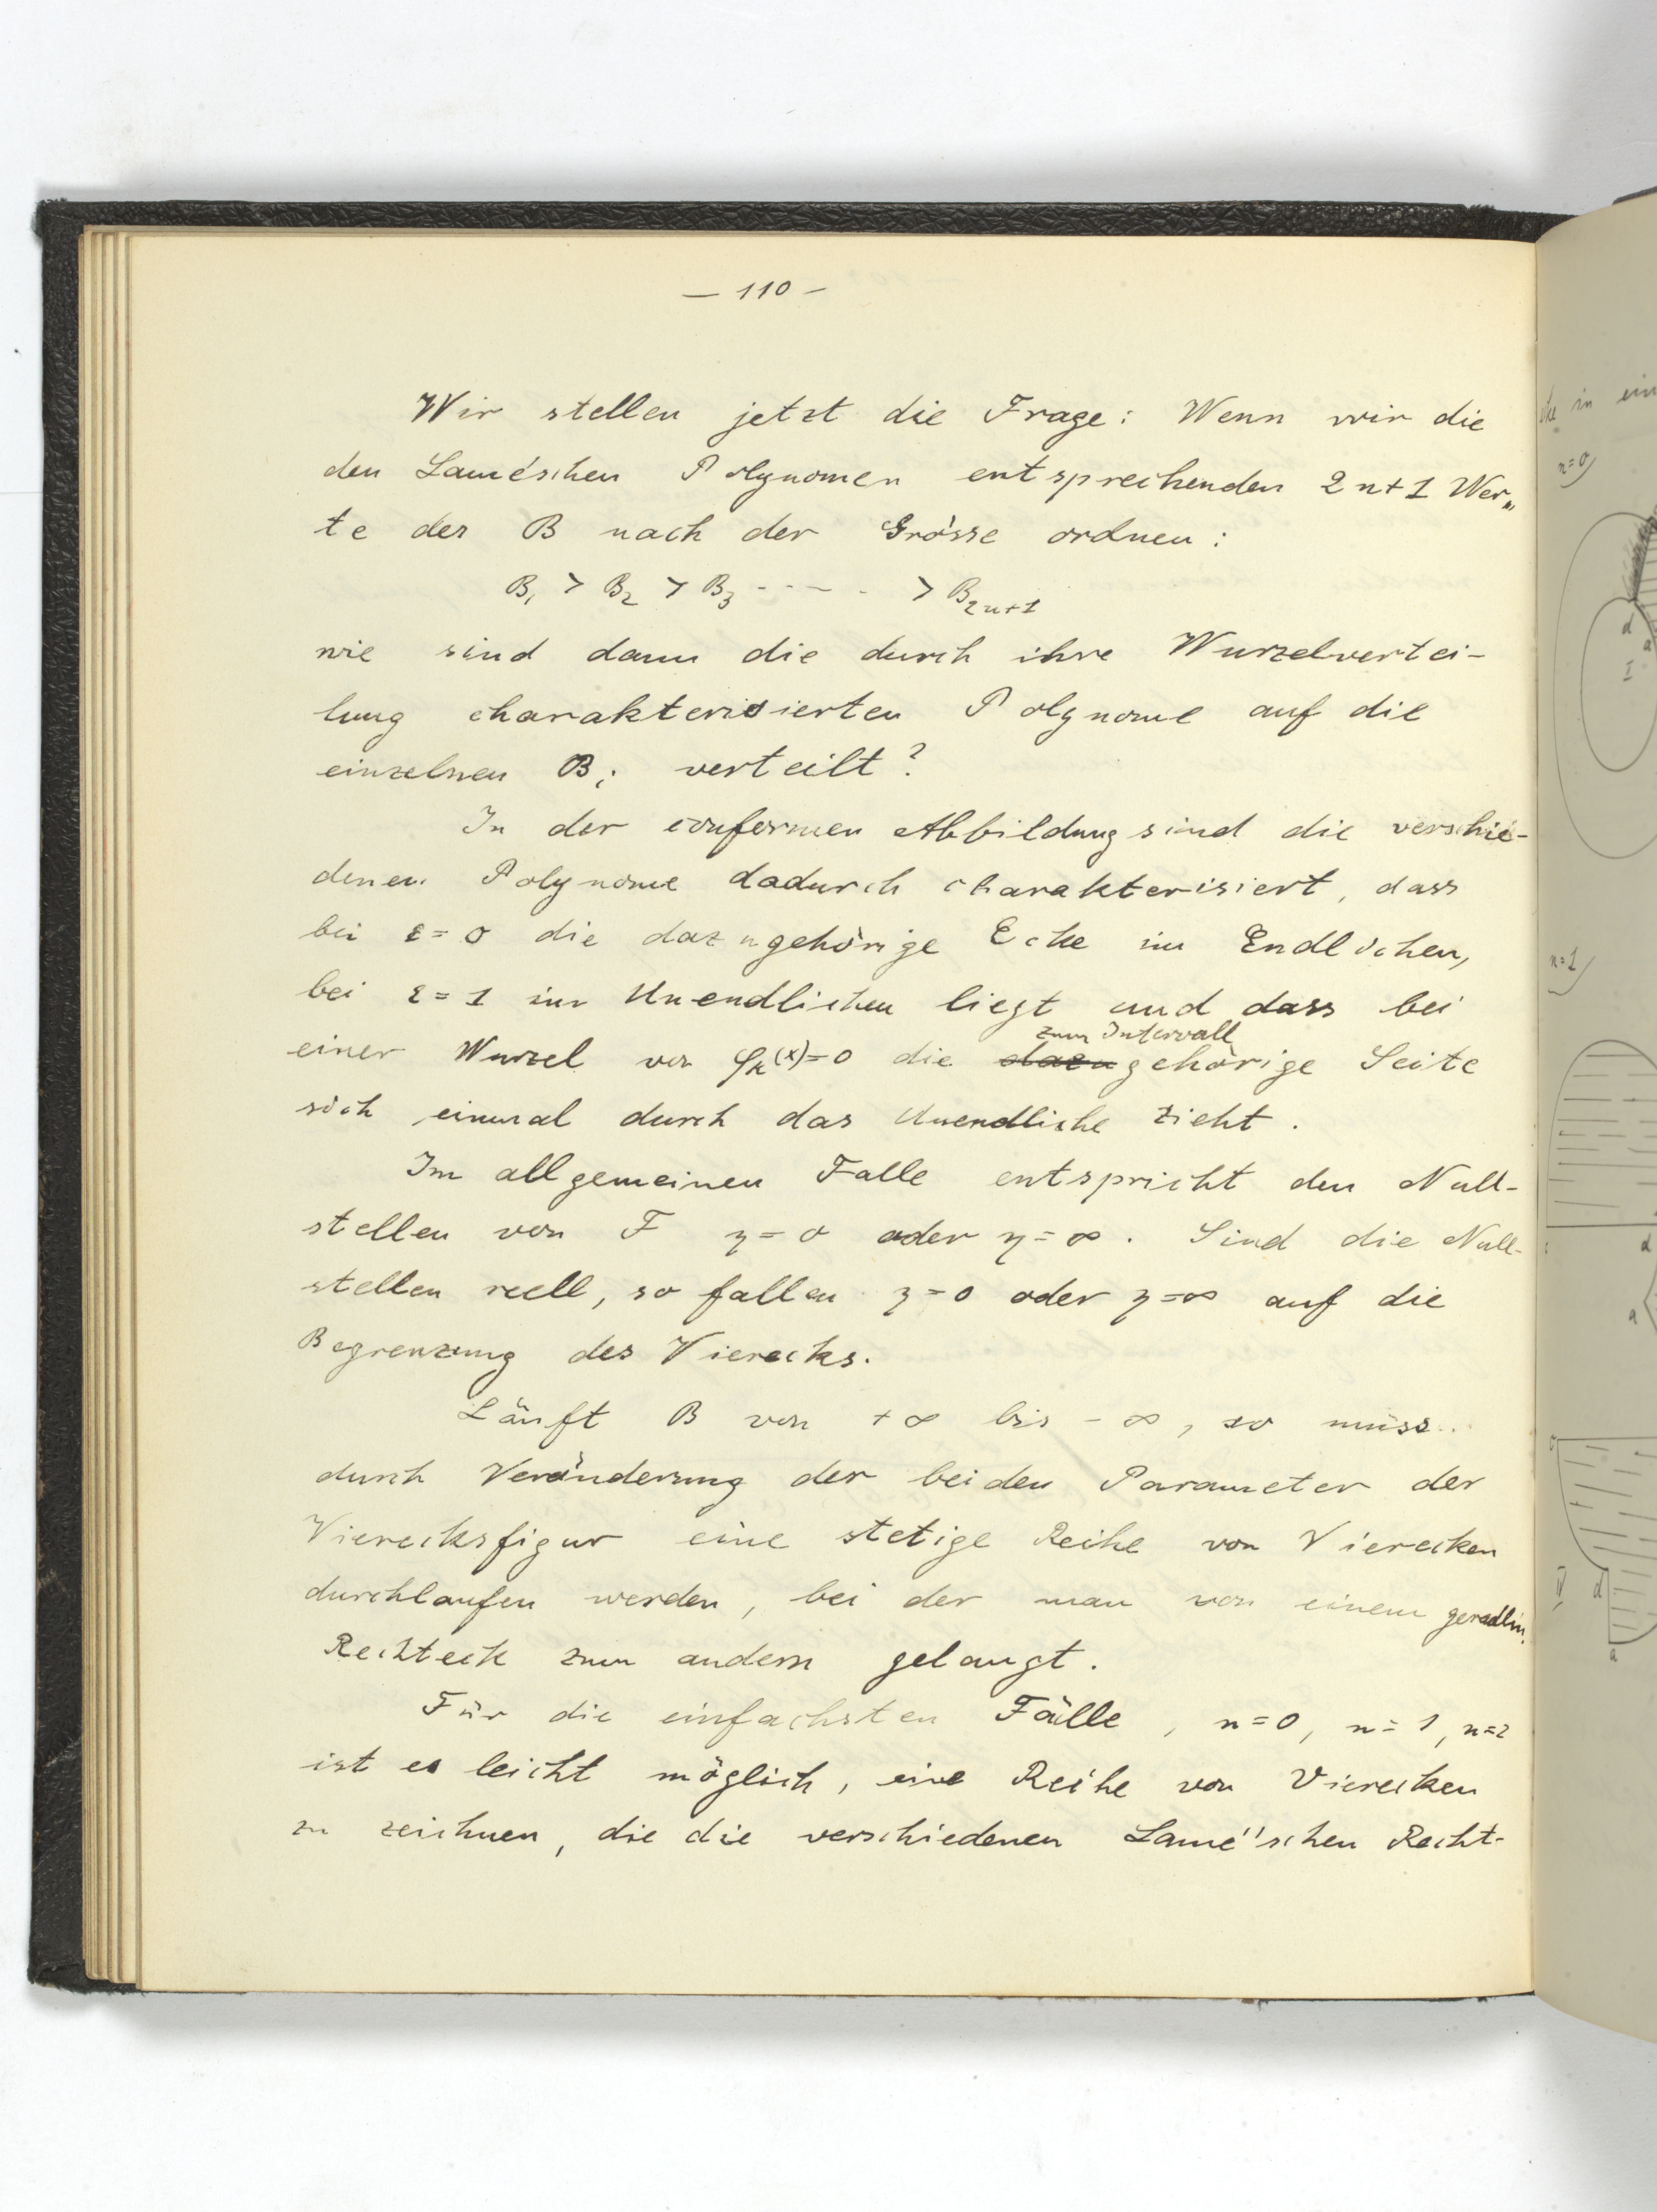 — 110 —
Wir stellen jetzt die Frage: Wenn wir die
den Lamé'schen Polynomen entsprechenden 2n+1 Wer„
te der B nach der Grösse ordnen:
B₁ > B₂ > B₃ - - - - . > B₂ₙ₊₁
wie sind dann die durch ihre Wurzelvertei-
lung charakterisierten Polynome auf die
einzelnen Bᵢ verteilt?
In der conformen Abbildung sind die verschie-
denen Polynome dadurch charakterisiert, dass
bei ε=0 die dazugehörige Ecke im Endlichen,
bei ε=1 im Unendlichen liegt und dass bei
zum Intervall
einer Wurzel von φₖ(x)=0 die dazugehörige Seite
sich einmal durch das Unendliche zieht.
Im allgemeinen Falle entspricht den Null-
stellen von F η=0 oder η=∞. Sind die Null-
stellen reell, so fallen η=0 oder η=∞ auf die
Begrenzung des Vierecks.
Läuft B von +∞ bis -∞, so muss
durch Veränderung der beiden Parameter der
Vierecksfigur eine stetige Reihe von Vierecken
durchlaufen werden, bei der man von einem geradlin.
Rechteck zum andern gelangt.
Für die einfachsten Fälle, n=0, n=1, n=2
ist es leicht möglich, eine Reihe von Vierecken
zu zeichnen, die die verschiedenen Lamé'schen Recht-
in ein
n=0)
d
a
I
n=1)
d
a
d
a